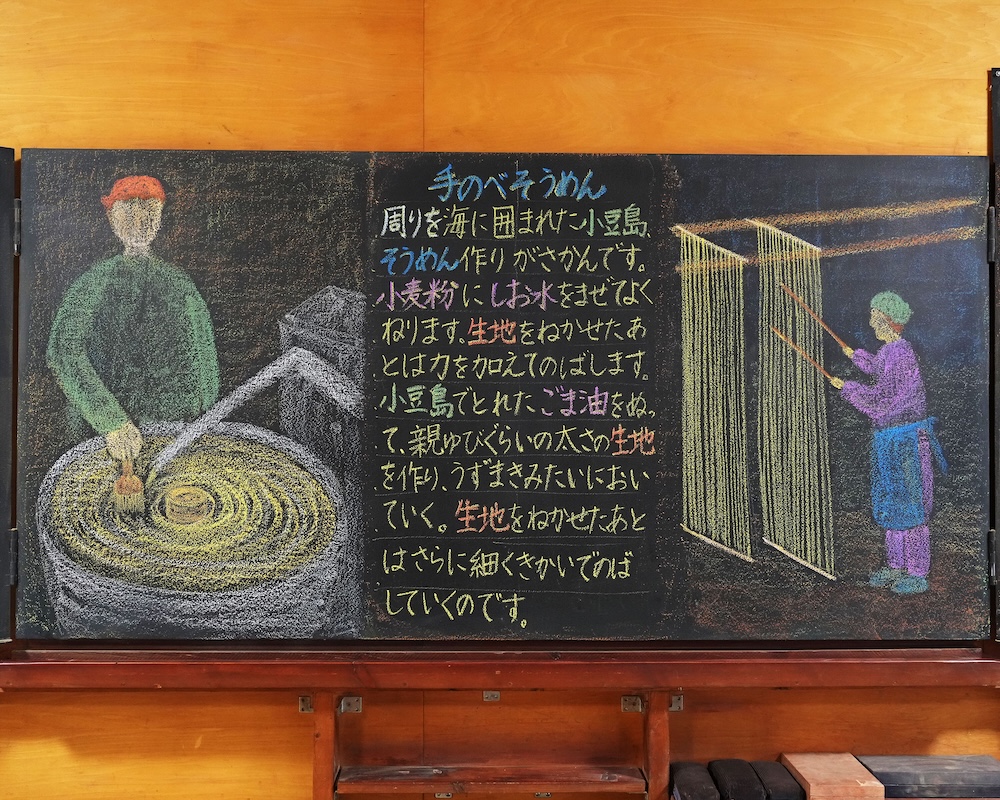 手のべそうめん
周りを海に囲まれた小豆島、
そうめん作りがさかんです。
小麦粉にしお水をまぜてよく
ねります。生地をねかせたあ
とは力を加えてのばします。
小豆島でとれたごま油をぬっ
て、親ゆびぐらいの太さの生地
を作り、うずまきみたいにおい
ていく。生地をねかせたあと
はさらに細くきかいでのば
していくのです。